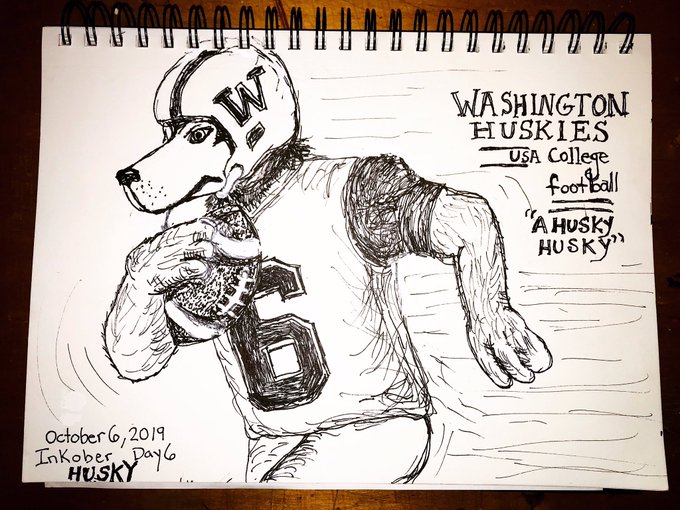 W
WASHINGTON
HUSKIES
USA College
football
"A HUSKY
HUSKY"
6
October 6, 2019
Inkober Day 6
HUSKY